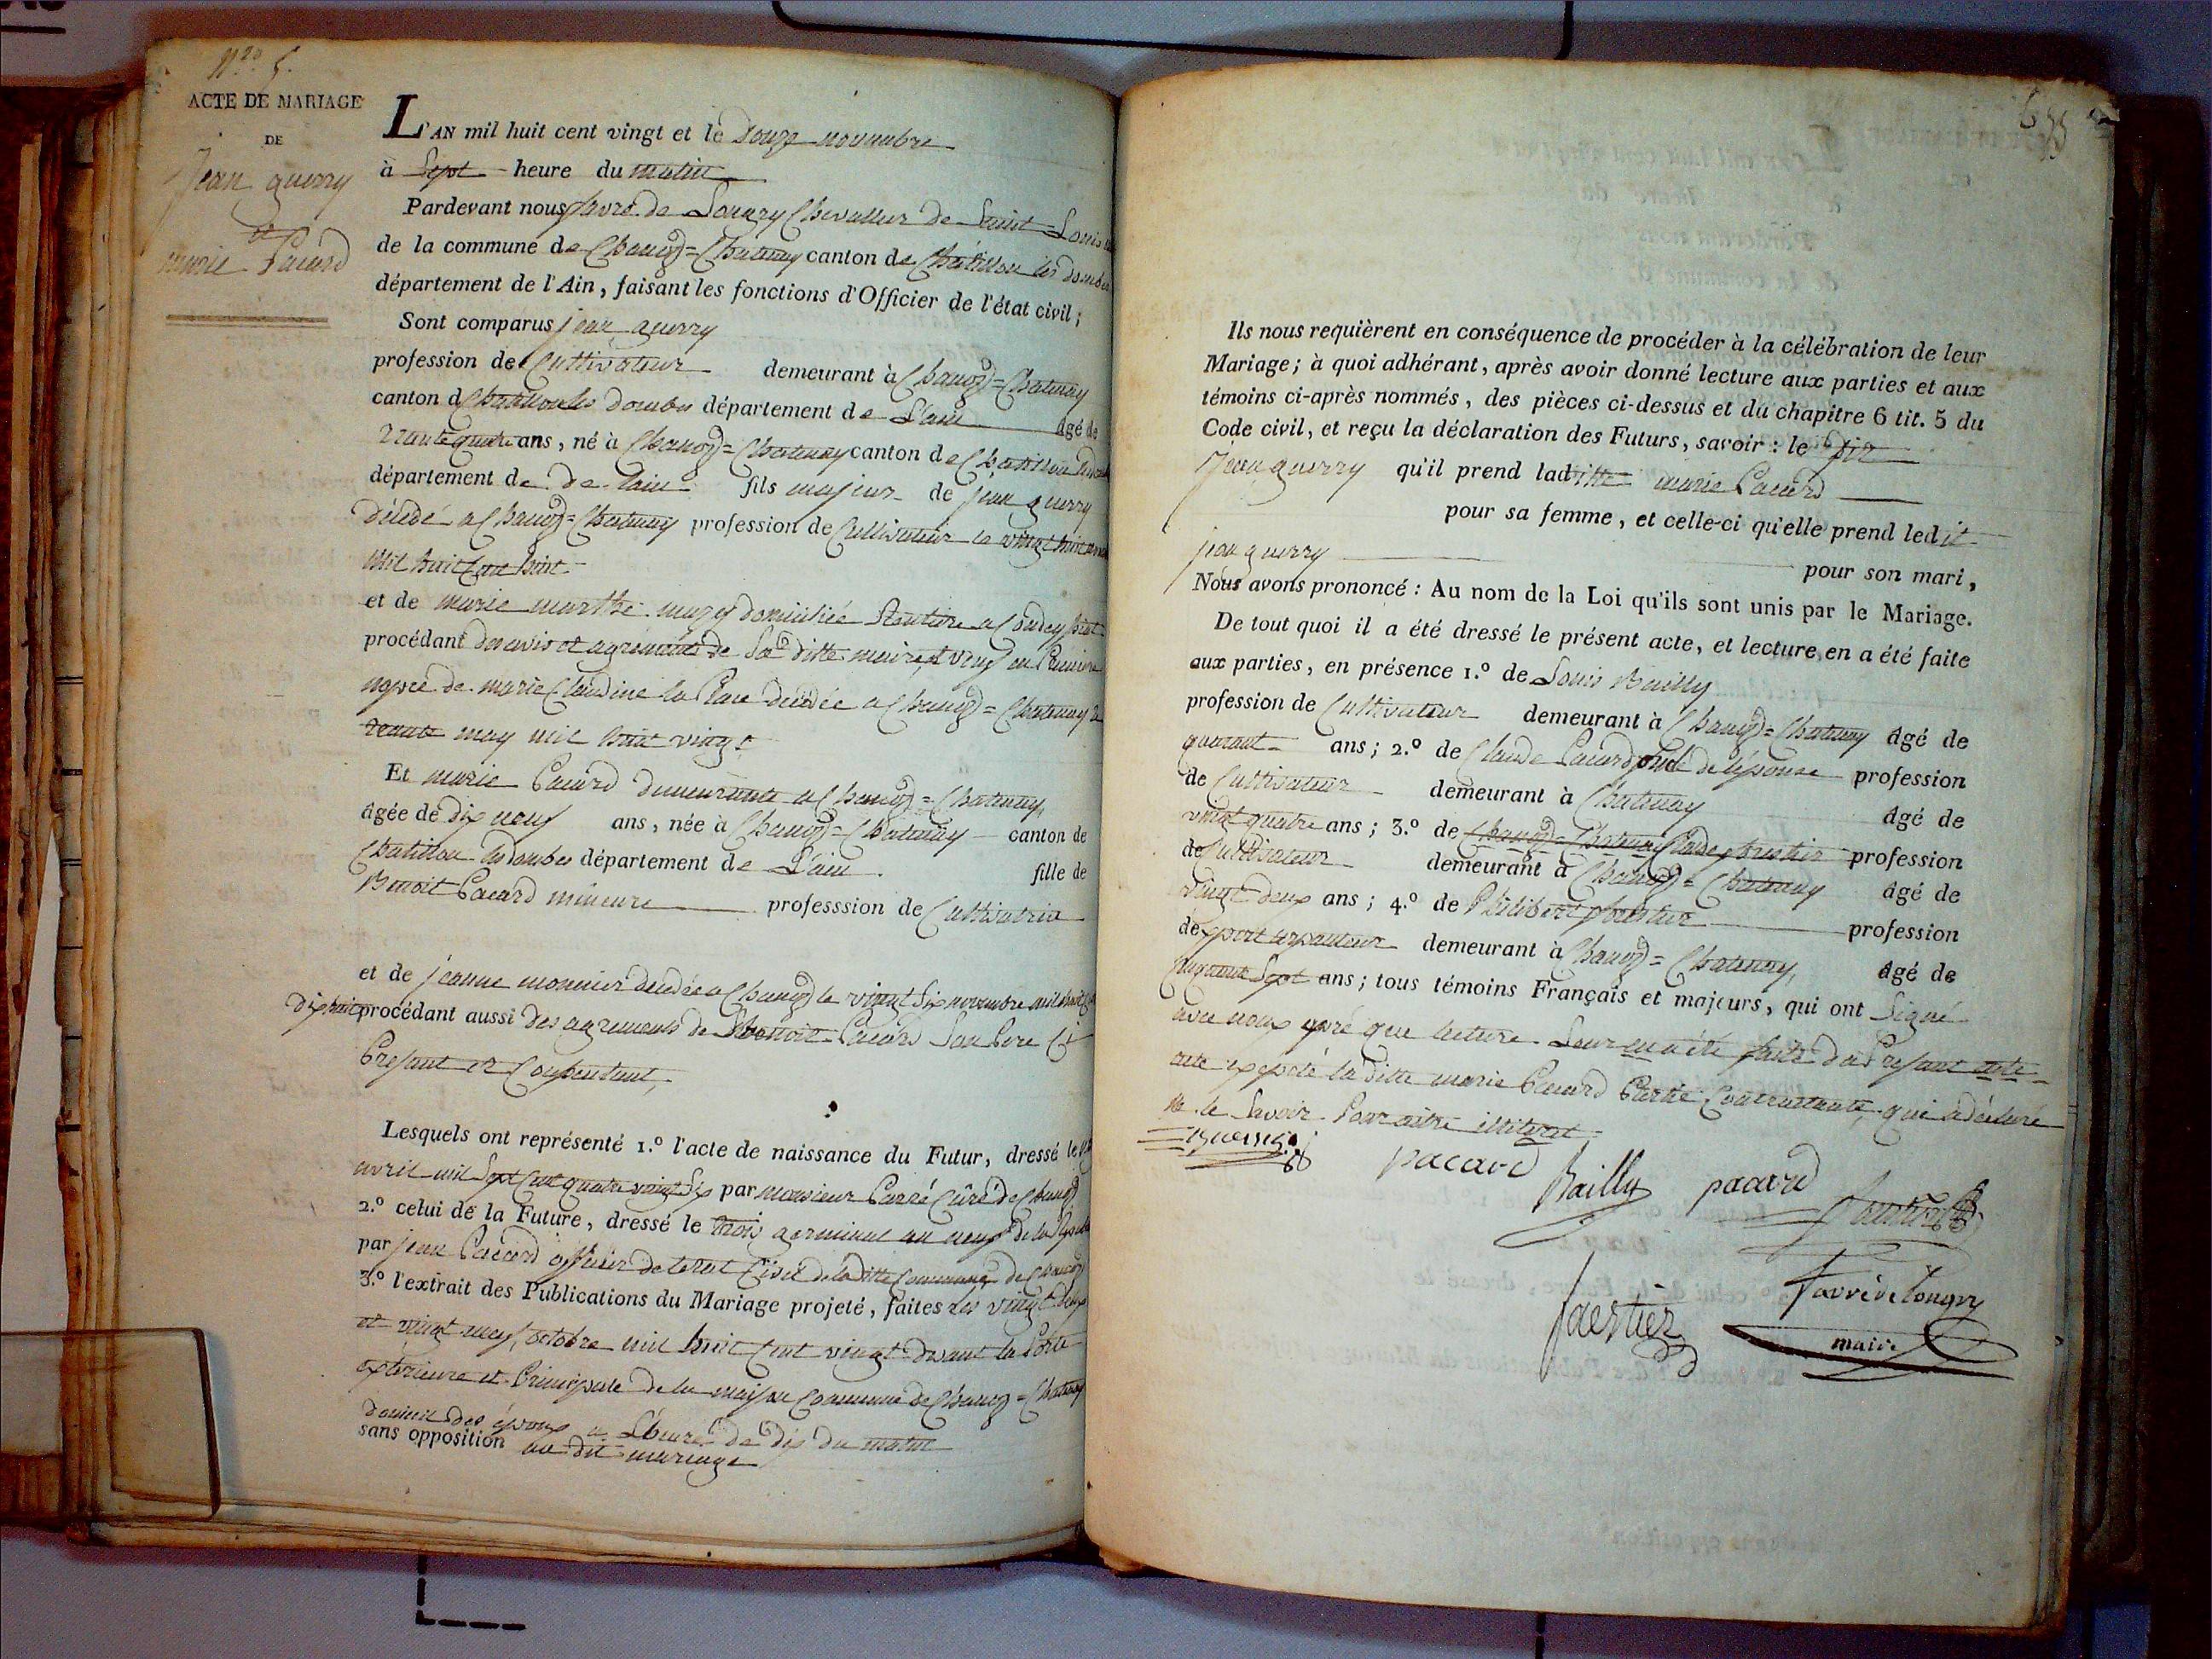 N.ro 5.
ACTE DE MARIAGE
DE
Jean guerry
et
marie Pacard
L'AN mil huit cent vingt et le douze novembre
à Sept heure du matin
Pardevant nous favre de Longry Chevallier de Saint=Louis
de la commune de Chanoz=Chatenay canton de Châtillon les dombes
département de l'Ain, faisant les fonctions d'Officier de l'état civil;
Sont comparus jean guerry
profession de Cultivateur demeurant à Chanoz=Chatenay
canton de Chatillon les dombes département de L'ain âgé de
trante quatre ans, né à Chanoz=Chatenay canton de Chatillon
département de de Lain fils majeur de jean guerry
décédé a Chanoz=Chatenay profession de Cultivateur le vingt huit
mil huit Cent huit
et de marie marthe domiciliée a Condeyssiat
procédant des avis et agréments de Sa ditte mere, et veuf en
de marie Claudine la Place décédée a Chanoz=Chatenay le
trante may mil huit vingt
Et marie Pacard demeurante a Chanoz=Chatenay,
âgée de dix neuf ans, née à Chanoz=Chatenay canton de
Chatillon les dombes département de L'ain fille de
Benoit Pacard mineure professsion de Cultivatrice
et de jeanne monnier décédée a Chanoz le vingt Six novembre mil huit Cent
dix huit procédant aussi des agrements de Benoit Pacard Son Pere Ci
Presant et Consentent,
Lesquels ont représenté 1.º l'acte de naissance du Futur, dressé le
avril mil Sept Cent quatre vingt Six par monsieur Carré Curé de Chanoz
2.º celui de la Future, dressé le trois germinal an neuf de la
par jean Pacard officier de letat Civil de la ditte Commune de Chanoz
3.º l'extrait des Publications du Mariage projeté, faites les vingt deux
et vingt neuf octobre mil huit Cent vingt devant la Porte
extérieure et Principale de la maison Commune de Chanoz=Chatenay
domicil des époux a L'heure de dix du matin
sans opposition au dit mariage
Ils nous requièrent en conséquence de procéder à la célébration de leur
Mariage; à quoi adhérant, après avoir donné lecture aux parties et aux
témoins ci-après nommés, des pièces ci-dessus et du chapitre 6 tit. 5 du
Code civil, et reçu la déclaration des Futurs, savoir: le dit
Jean guerry qu'il prend laditte marie Pacard
pour sa femme, et celle-ci qu'elle prend ledit
jean guerry pour son mari,
Nous avons prononcé: Au nom de la Loi qu'ils sont unis par le Mariage.
De tout quoi il a été dressé le présent acte, et lecture en a été faite
aux parties, en présence 1.º de Louis Bailly
profession de Cultivateur demeurant à Chanoz=Chatenay âgé de
quarant ans; 2.º de Claude Pacard oncle de l'épouse profession
de Cultivateur demeurant à Chatenay âgé de
vingt quatre ans; 3.º de Chanoz=Chatenay Claude profession
de Cultivateur demeurant à Chanoz=Chatenay âgé de
vingt deux ans; 4.º de Philibert profession
de demeurant à Chanoz=Chatenay, âgé de
Cinquante Sept ans; tous témoins Français et majeurs, qui ont Signé
avec nous apré que lecture Leur en a été faite du Presant acte
excepté la ditte marie Pacard Partie Contractante, qui a déclaré
ne le Savoir Pour aitre illiteret
guerry
pacard
Bailly
pacard
favre de Longry
maire